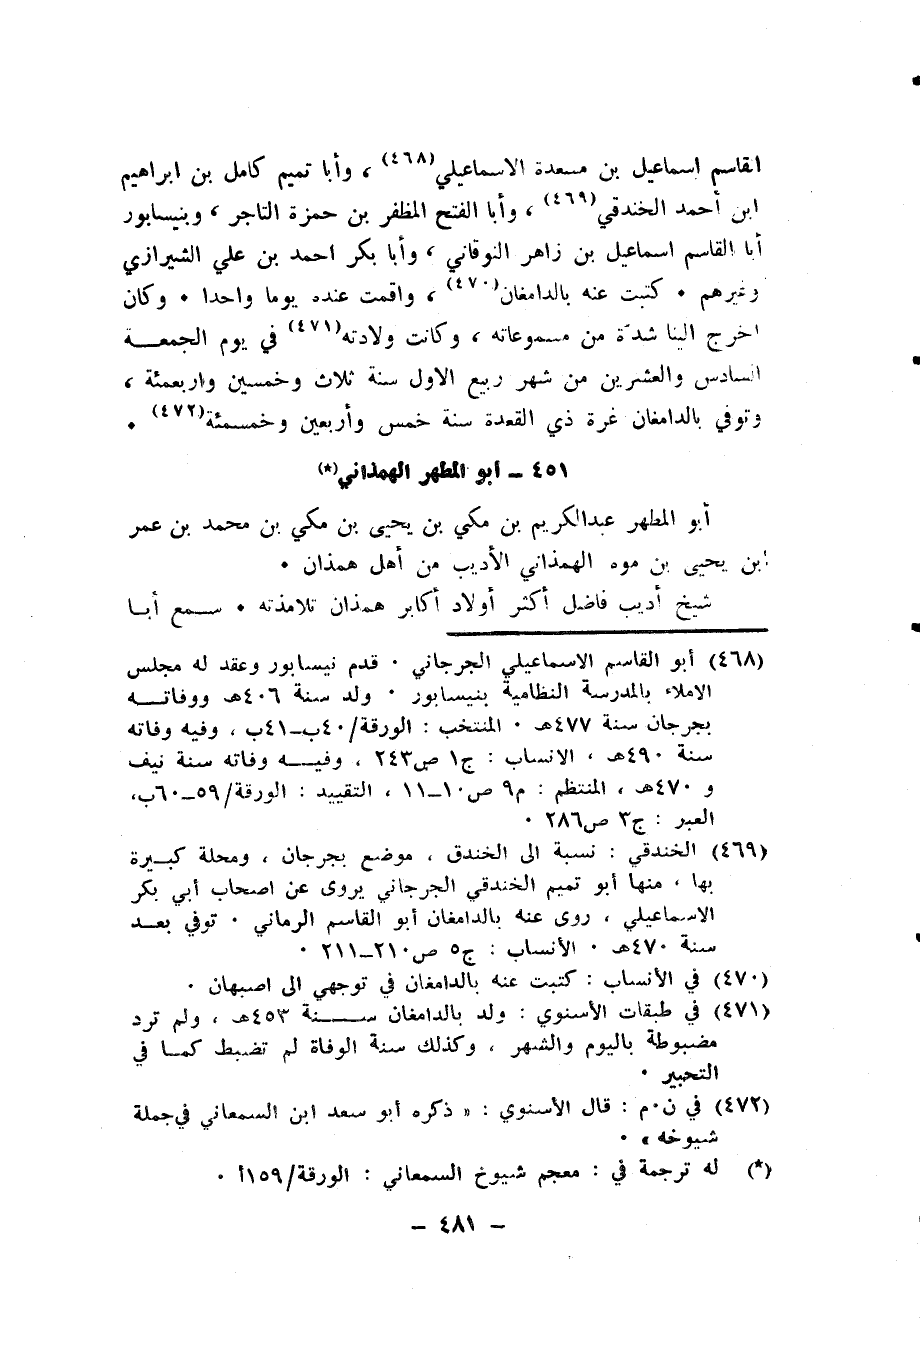 القاسم اسماعيل بن مسعدة الاسماعيلي(٤٦٨) ، وأبا تميم كامل بن ابراهيم
ابن أحمد الخندقي(٤٦٩) ، وأبا الفتح المظفر بن حمزة التاجر ، وبنيسابور
أبا القاسم اسماعيل بن زاهر النوقاني ، وأبا بكر احمد بن علي الشيرازي
وغيرهم ٠ كتبت عنه بالدامغان(٤٧٠) ، واقمت عنده يوما واحدا ٠ وكان
اخرج الينا شدّة من مسموعاته ، وكانت ولادته(٤٧١) في يوم الجمعـــة
السادس والعشرين من شهر ربيع الاول سنة ثلاث وخمسين واربعمئة ،
وتوفي بالدامغان غرة ذي القعدة سنة خمس وأربعين وخمسمئة(٤٧٢) ٠
٤٥١ ــ أبو المطهر الهمذاني(*)
أبو المطهر عبدالكريم بن مكي بن يحيى بن مكي بن محمد بن عمر
ابن يحيى بن موه الهمذاني الأديب من أهل همذان ٠
شيخ أديب فاضل أكثر أولاد أكابر همذان تلامذته ٠ ســمع أبــا
(٤٦٨) أبو القاسم الاسماعيلي الجرجاني ٠ قدم نيسابور وعقد له مجلس
الاملاء بالمدرسة النظامية بنيسابور ٠ ولد سنة ٤٠٦هـ ووفاتــه
بجرجان سنة ٤٧٧هـ ٠ المنتخب : الورقة/٤٠ب–٤١ب ، وفيه وفاته
سنة ٤٩٠هـ ، الانساب : ج١ ص٢٤٣ ، وفيـــه وفاته سنة نيف
و ٤٧٠هـ ، المنتظم : م٩ ص١٠–١١ ، التقييد : الورقة/٥٩–٦٠ب،
العبر : ج٣ ص٢٨٦ ٠
(٤٦٩) الخندقي : نسبة الى الخندق ، موضع بجرجان ، ومحلة كبيرة
بها ، منها أبو تميم الخندقي الجرجاني يروى عن اصحاب أبي بكر
الاسماعيلي ، روى عنه بالدامغان أبو القاسم الرماني ٠ توفي بعــد
سنة ٤٧٠هـ ٠ الأنساب : ج٥ ص٢١٠–٢١١ ٠
(٤٧٠) في الأنساب : كتبت عنه بالدامغان في توجهي الى اصبهان ٠
(٤٧١) في طبقات الأسنوي : ولد بالدامغان ســـــنة ٤٥٣هـ ، ولم ترد
مضبوطة باليوم والشهر ، وكذلك سنة الوفاة لم تضبط كمــا في
التحبير ٠
(٤٧٢) في ن٠م : قال الأسنوي : « ذكره أبو سعد ابن السمعاني في جملة
شيوخه » ٠
(*) له ترجمة في : معجم شيوخ السمعاني : الورقة/١٥٩أ ٠
– ٤٨١ –